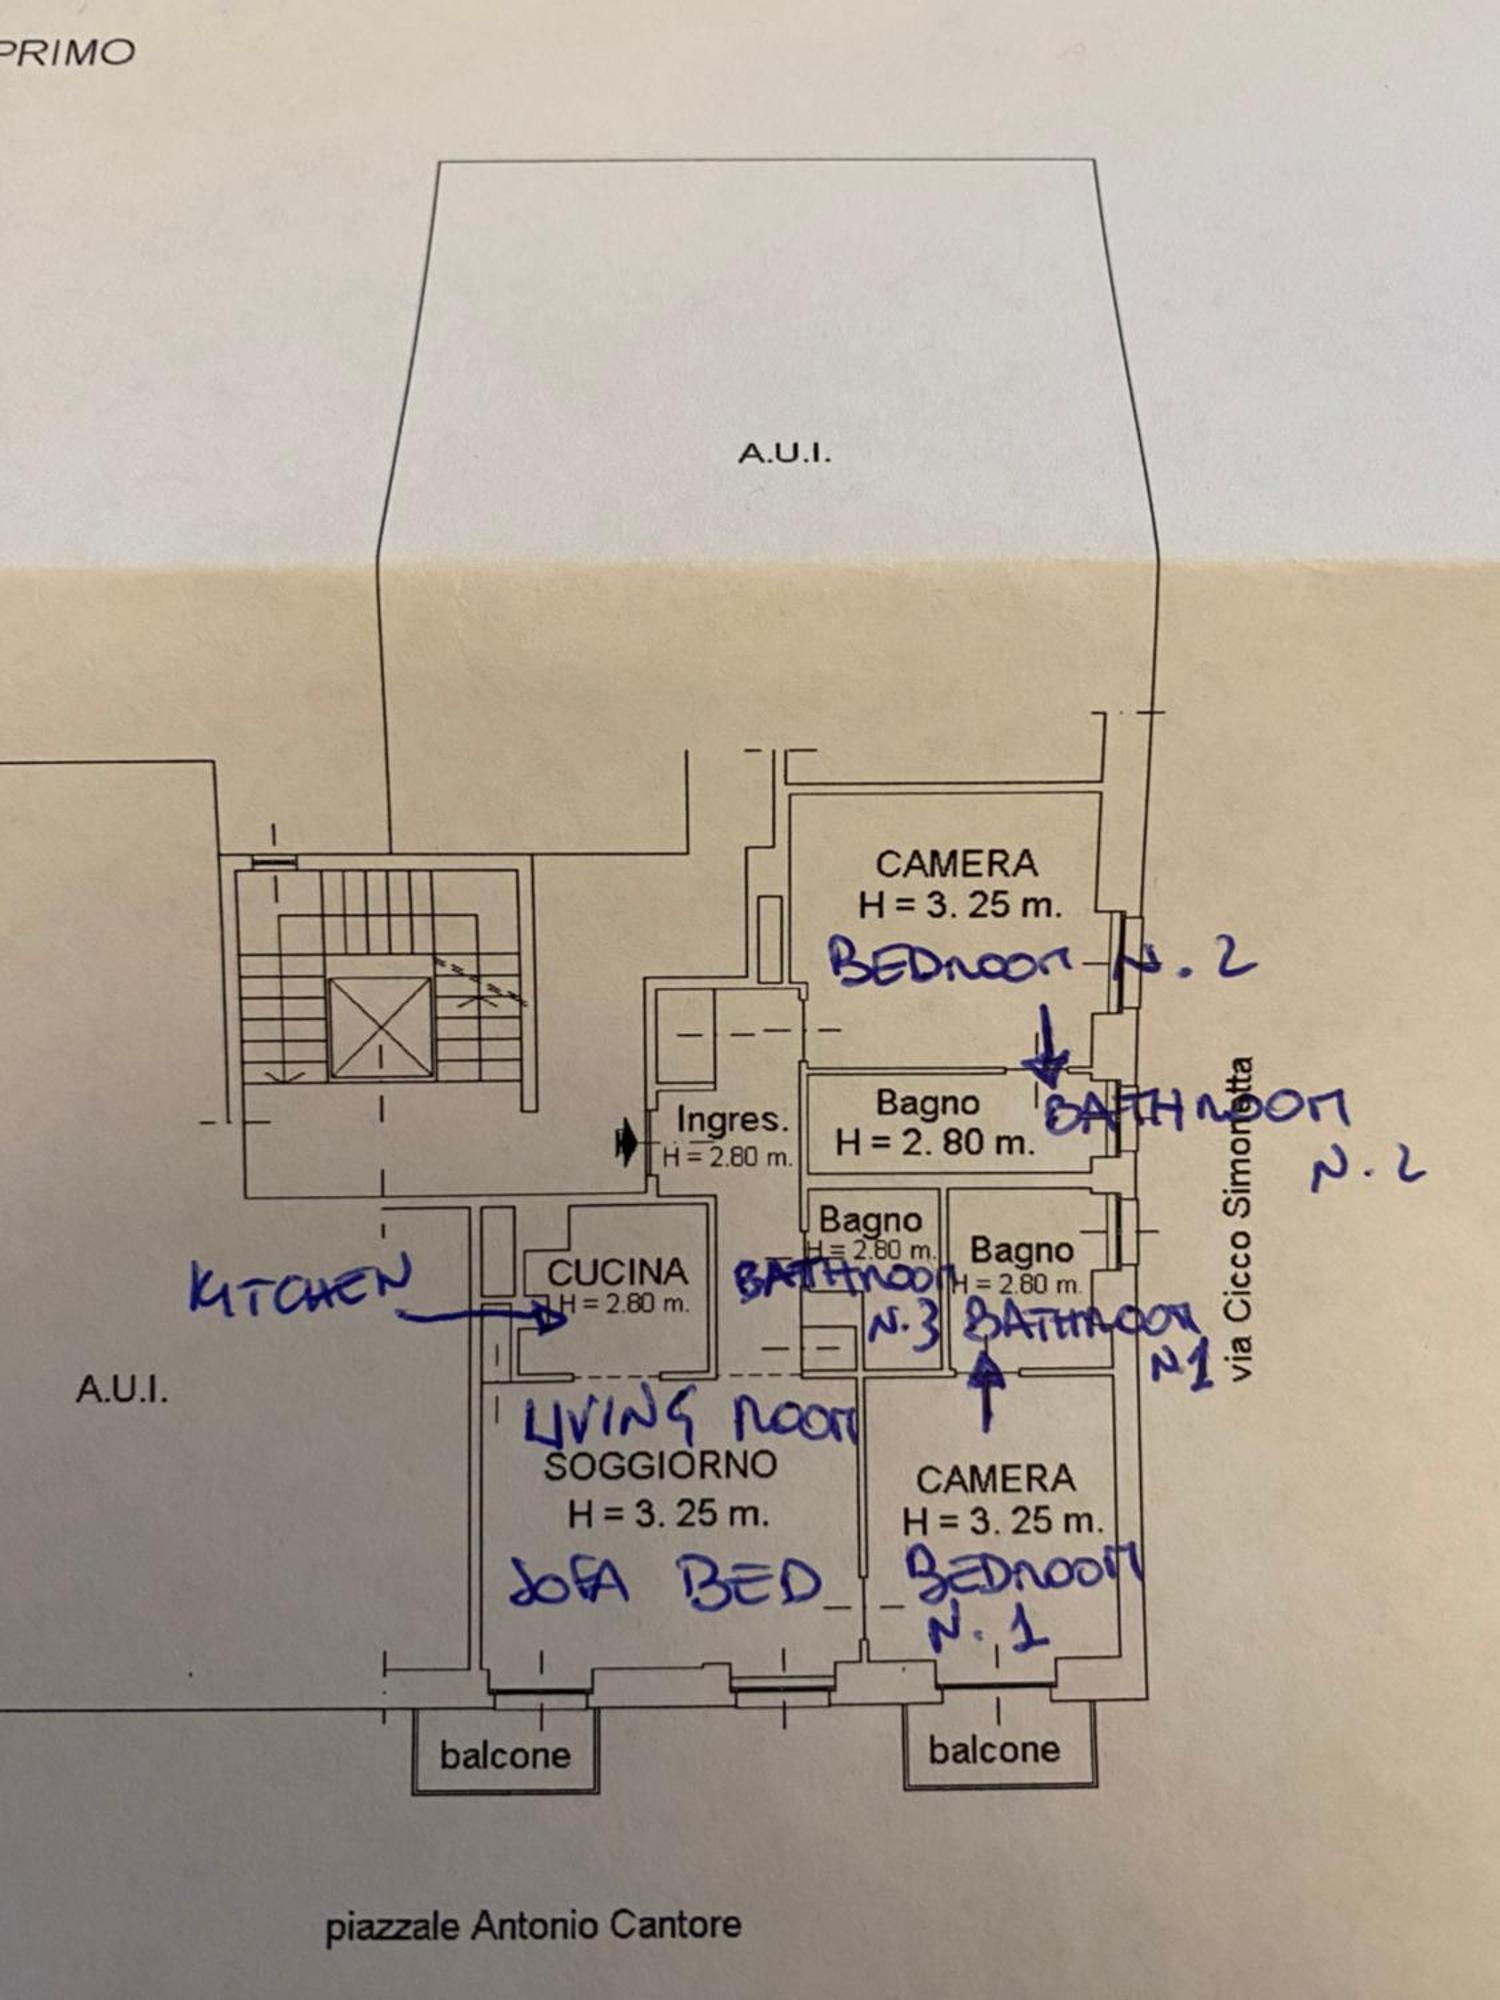 PRIMO
A.U.I.
CAMERA
H = 3. 25 m.
BEDROOM N. 2
Bagno
H = 2. 80 m.
BATHROOM
N. 2
Ingres.
H = 2.80 m.
Bagno
H = 2.80 m.
BATHROOM
N. 3
Bagno
H = 2.80 m.
BATHROOM
N 1
via Cicco Simonetta
CUCINA
H = 2.80 m.
KITCHEN
A.U.I.
LIVING ROOM
SOGGIORNO
H = 3. 25 m.
SOFA BED
CAMERA
H = 3. 25 m.
BEDROOM
N. 1
balcone
balcone
piazzale Antonio Cantore